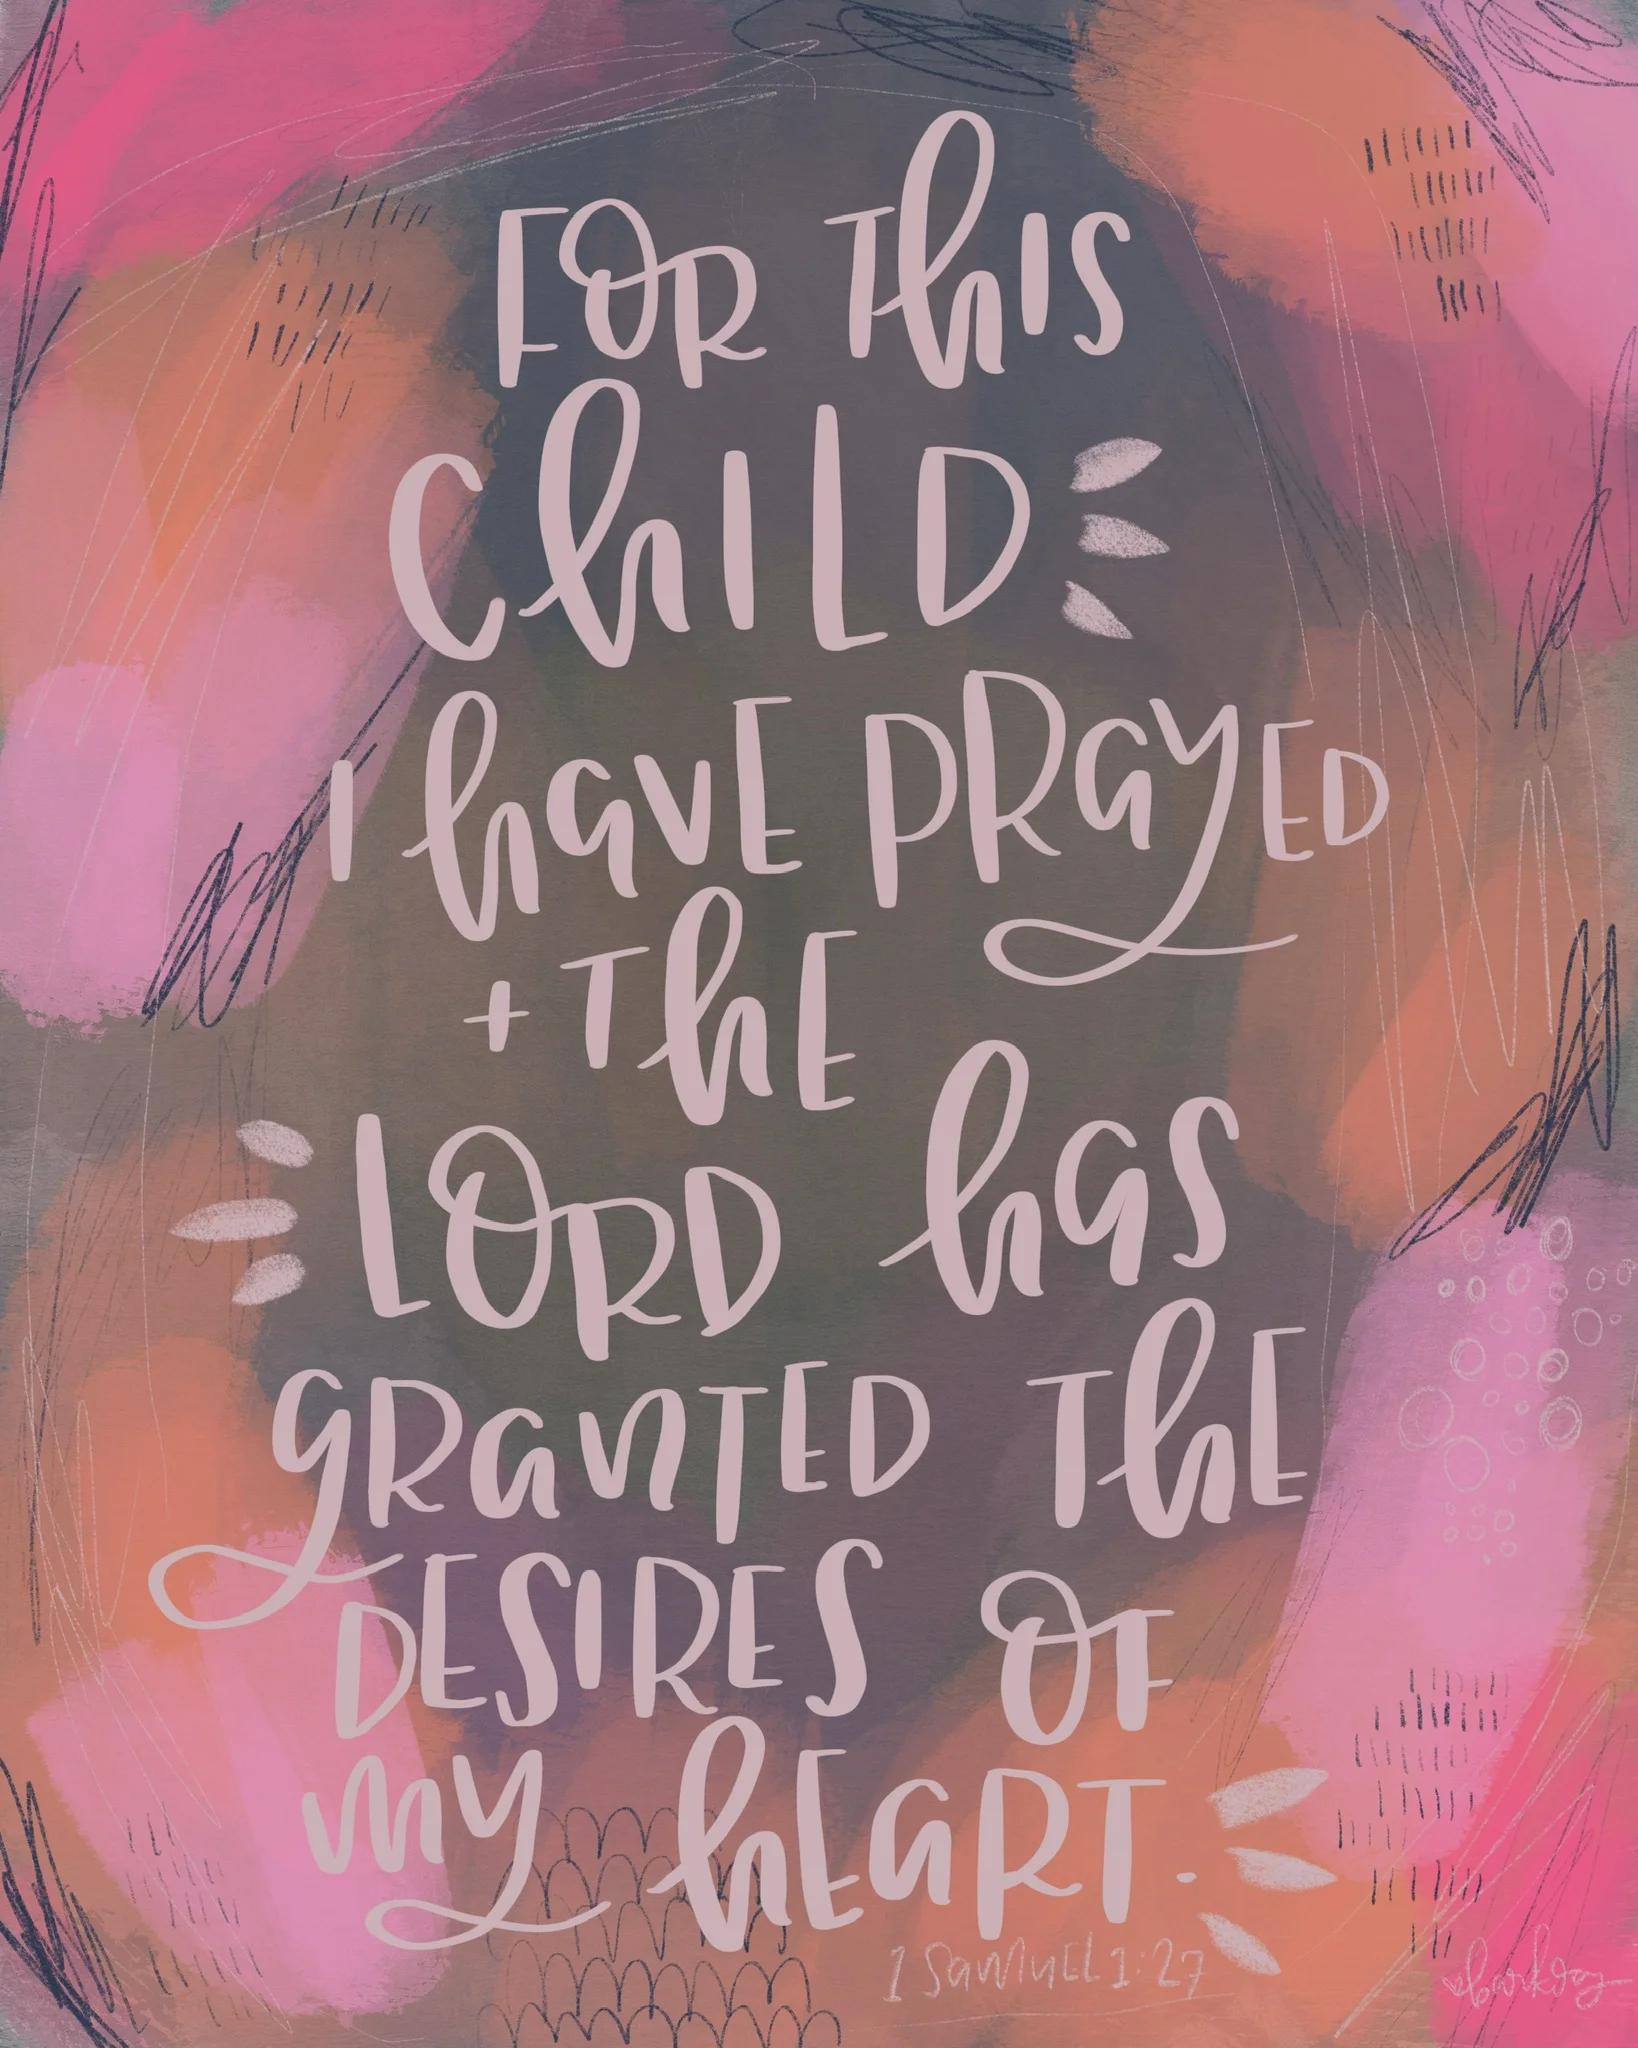 FOR ThIS
ChILD
I haVE PRayED
+ ThE
LORD haS
gRanTED ThE
DESIRES OF
my hEaRT.
1 Samuel 1:27